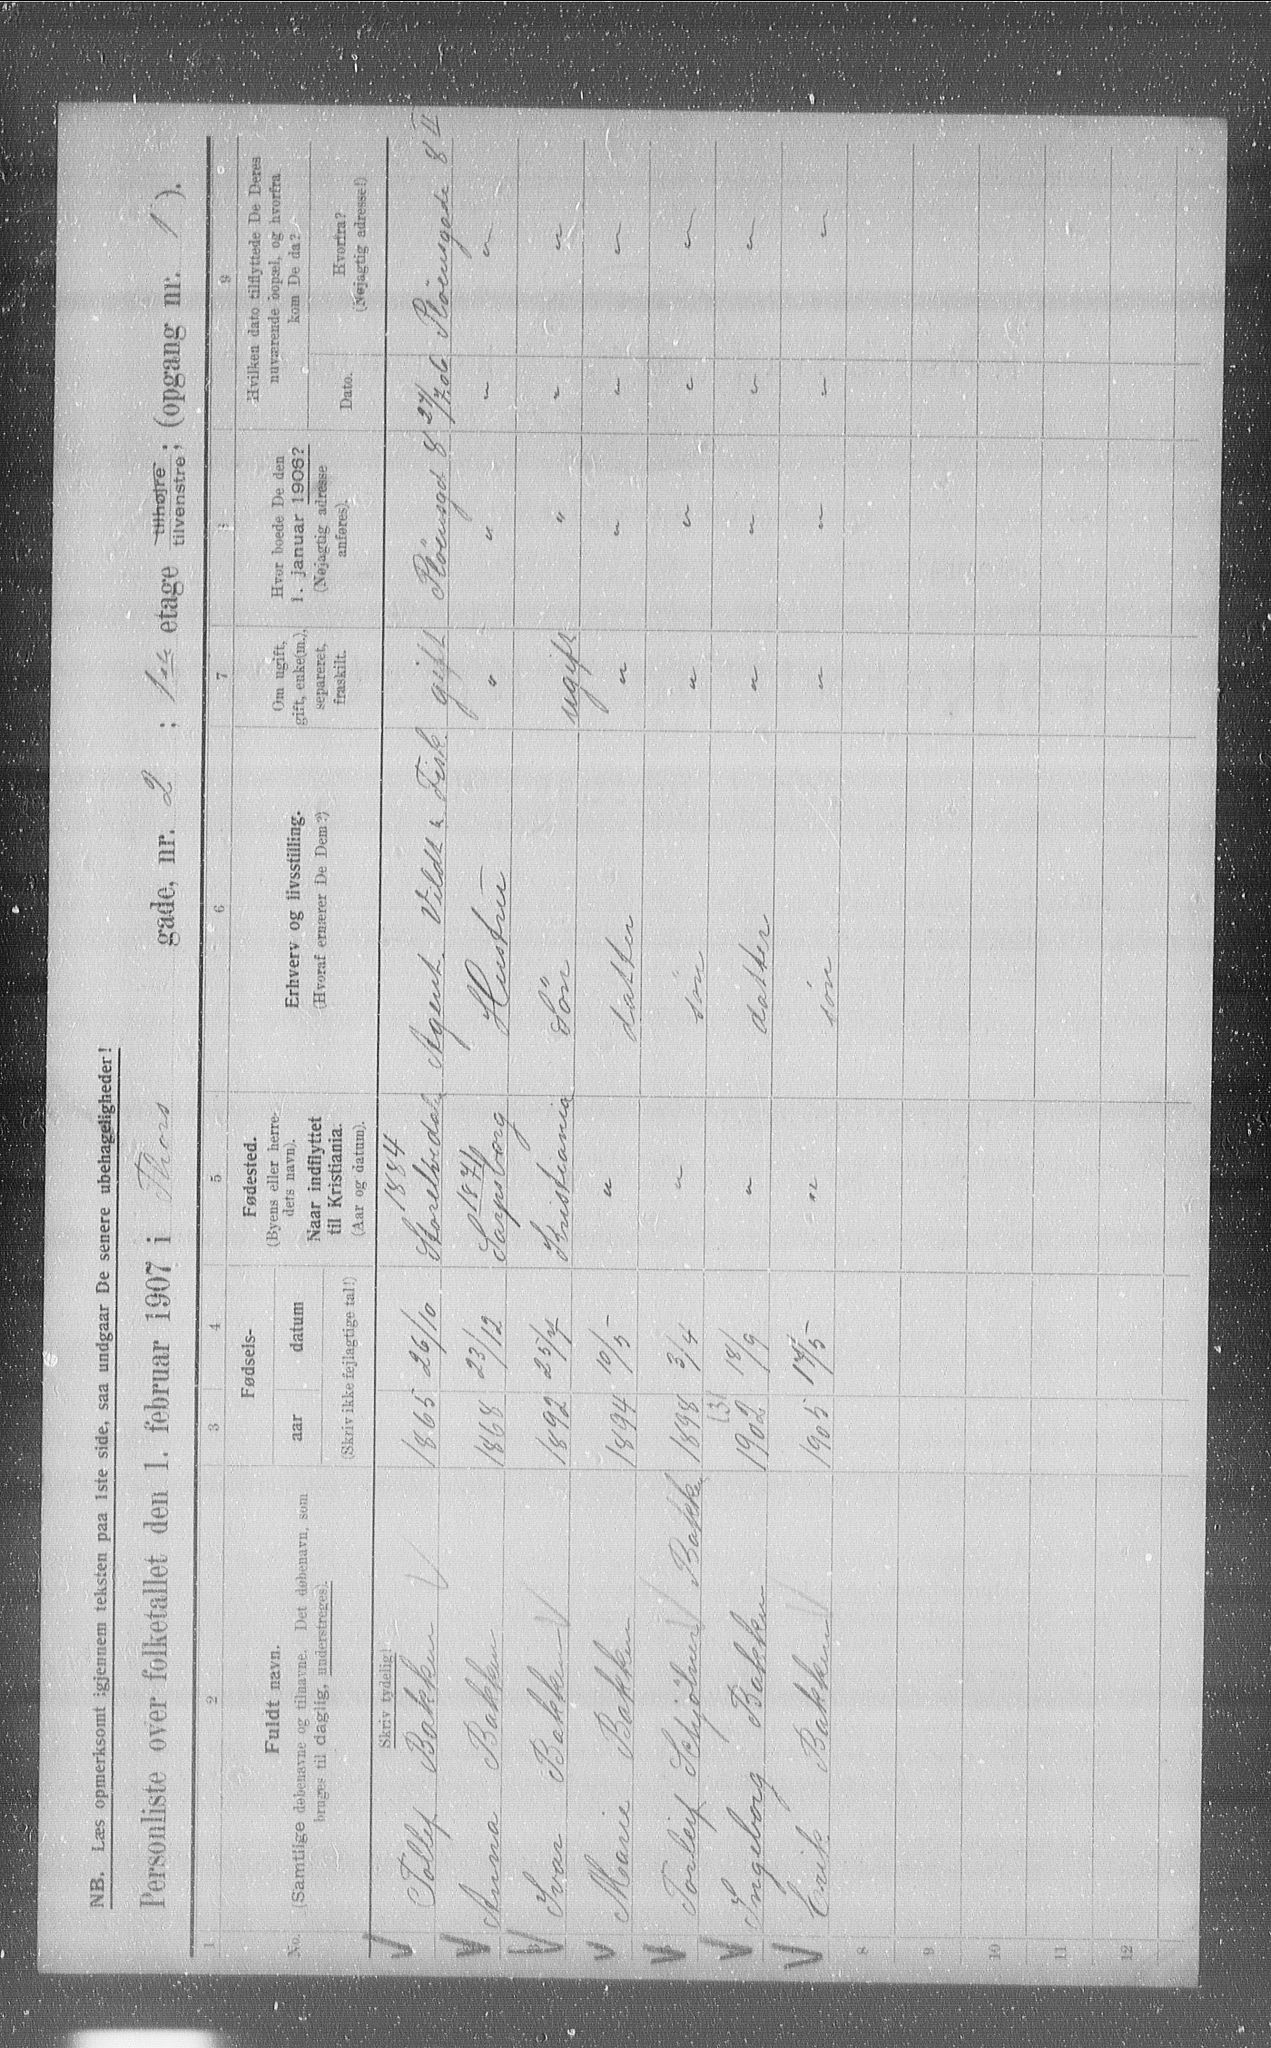 NB. Læs opmerksomt igjennem teksten paa 1ste side, saa undgaar De senere ubehageligheder!
Personliste over folketallet den 1. februar 1907 i Thors gade, nr. 2 ; 1ste etage tilhøjre tilvenstre; (opgang nr. 1 ).
1 2 3 4 5 6 7 8 9
No.
Fuldt navn.
(Samtlige døbenavne og tilnavne. Det døbenavn, som
bruges til daglig, understreges).
Skriv tydelig!
Fødsels-
aar datum
(Skriv ikke fejlagtige tal!)
Fødested.
(Byens eller herre-
dets navn).
Naar indflyttet
til Kristiania.
(Aar og datum).
Erhverv og livsstilling.
(Hvoraf ernærer De Dem?)
Om ugift,
gift, enke(m.),
separeret,
fraskilt.
Hvor boede De den
1. januar 1906?
(Nøjagtig adresse
anføres).
Hvilken dato tilflyttede De Deres
nuværende bopæl, og hvorfra
kom De da?
Dato.
Hvorfra?
(Nøjagtig adresse!)
1884
Tollef Bakken 1865 26/10 Storelvedal Agent Vildt & Fisk gift Pløensgd 8 27/7 06 Pløensgade 8 II
1874
Anna Bakken 1868 23/12 Sarpsborg Hustru " " " "
Ivar Bakken 1892 25/4 Kristiania Søn ugift " " "
Marie Bakken 1894 10/5 " datter " " " "
Torleif Bakken 1898 3/4 " søn " " " "
(3)
Ingeborg Bakken 1902 18/9 " datter " " " "
Erik Bakken 1905 14/5 " søn " " " "
8
9
10
11
12